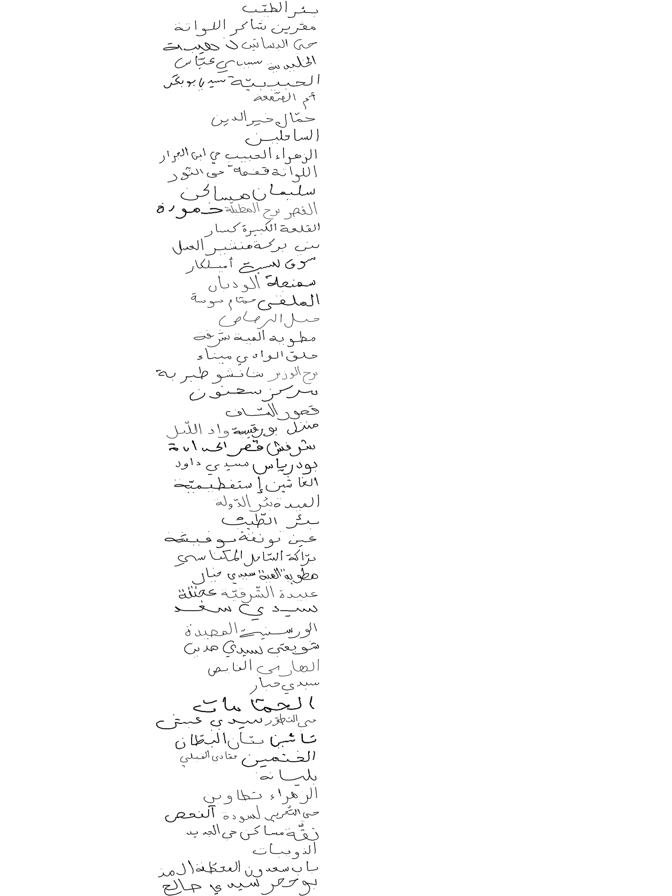 بئر الطيب
مقرين شاكر اللواتة
حي البساتين ذهيبة
الحليدية سيدي عباس
الحبيبية سيدي بوبكر
أم
حمال خير الدين
الساحلين
الزهراء الحبيب حي ابن الجزار
اللواتة قفصة حي النور
سليمان مساكن
القصر برج الحفيظة خمودة
القلعة الكبيرة كسار
بني بركة هنشير العسل
سوق لسبت أميلكار
سمنجة الوديان
الملقى حمام سوسة
جبل الرصاص
مطوية العبة شرفة
حلق الوادي ميناء
برج الوزير شانشو طبربة
مركز سحنون
قصور الساف
منزل بورقيبة واد الليل
شرفش قصر الحدادة
بودرياس سيدي داود
الغاشين إستفطيمية
العبدة بئر الدولة
بئر الطيب
عين نوفية بوفيشة
دراكة الساحل المكناسي
مطوية العبة سيدي حبار
عبيدة الشرقية عجلة
سيدي سعد
الورسنية المصيدة
شويغي سيدي مدين
الهاربي القابص
سيدي حبار
الحمامات
حي التطور سيدي عيش
تاشين بئان البطان
الغنمين القبلي
بليانة
الزهراء تطاوين
حي التحرير لسودة النحص
نقة مساكن حي الجديد
الذويبات
باب سعدون المحطة الرمز
بوحجر سيدي صالح